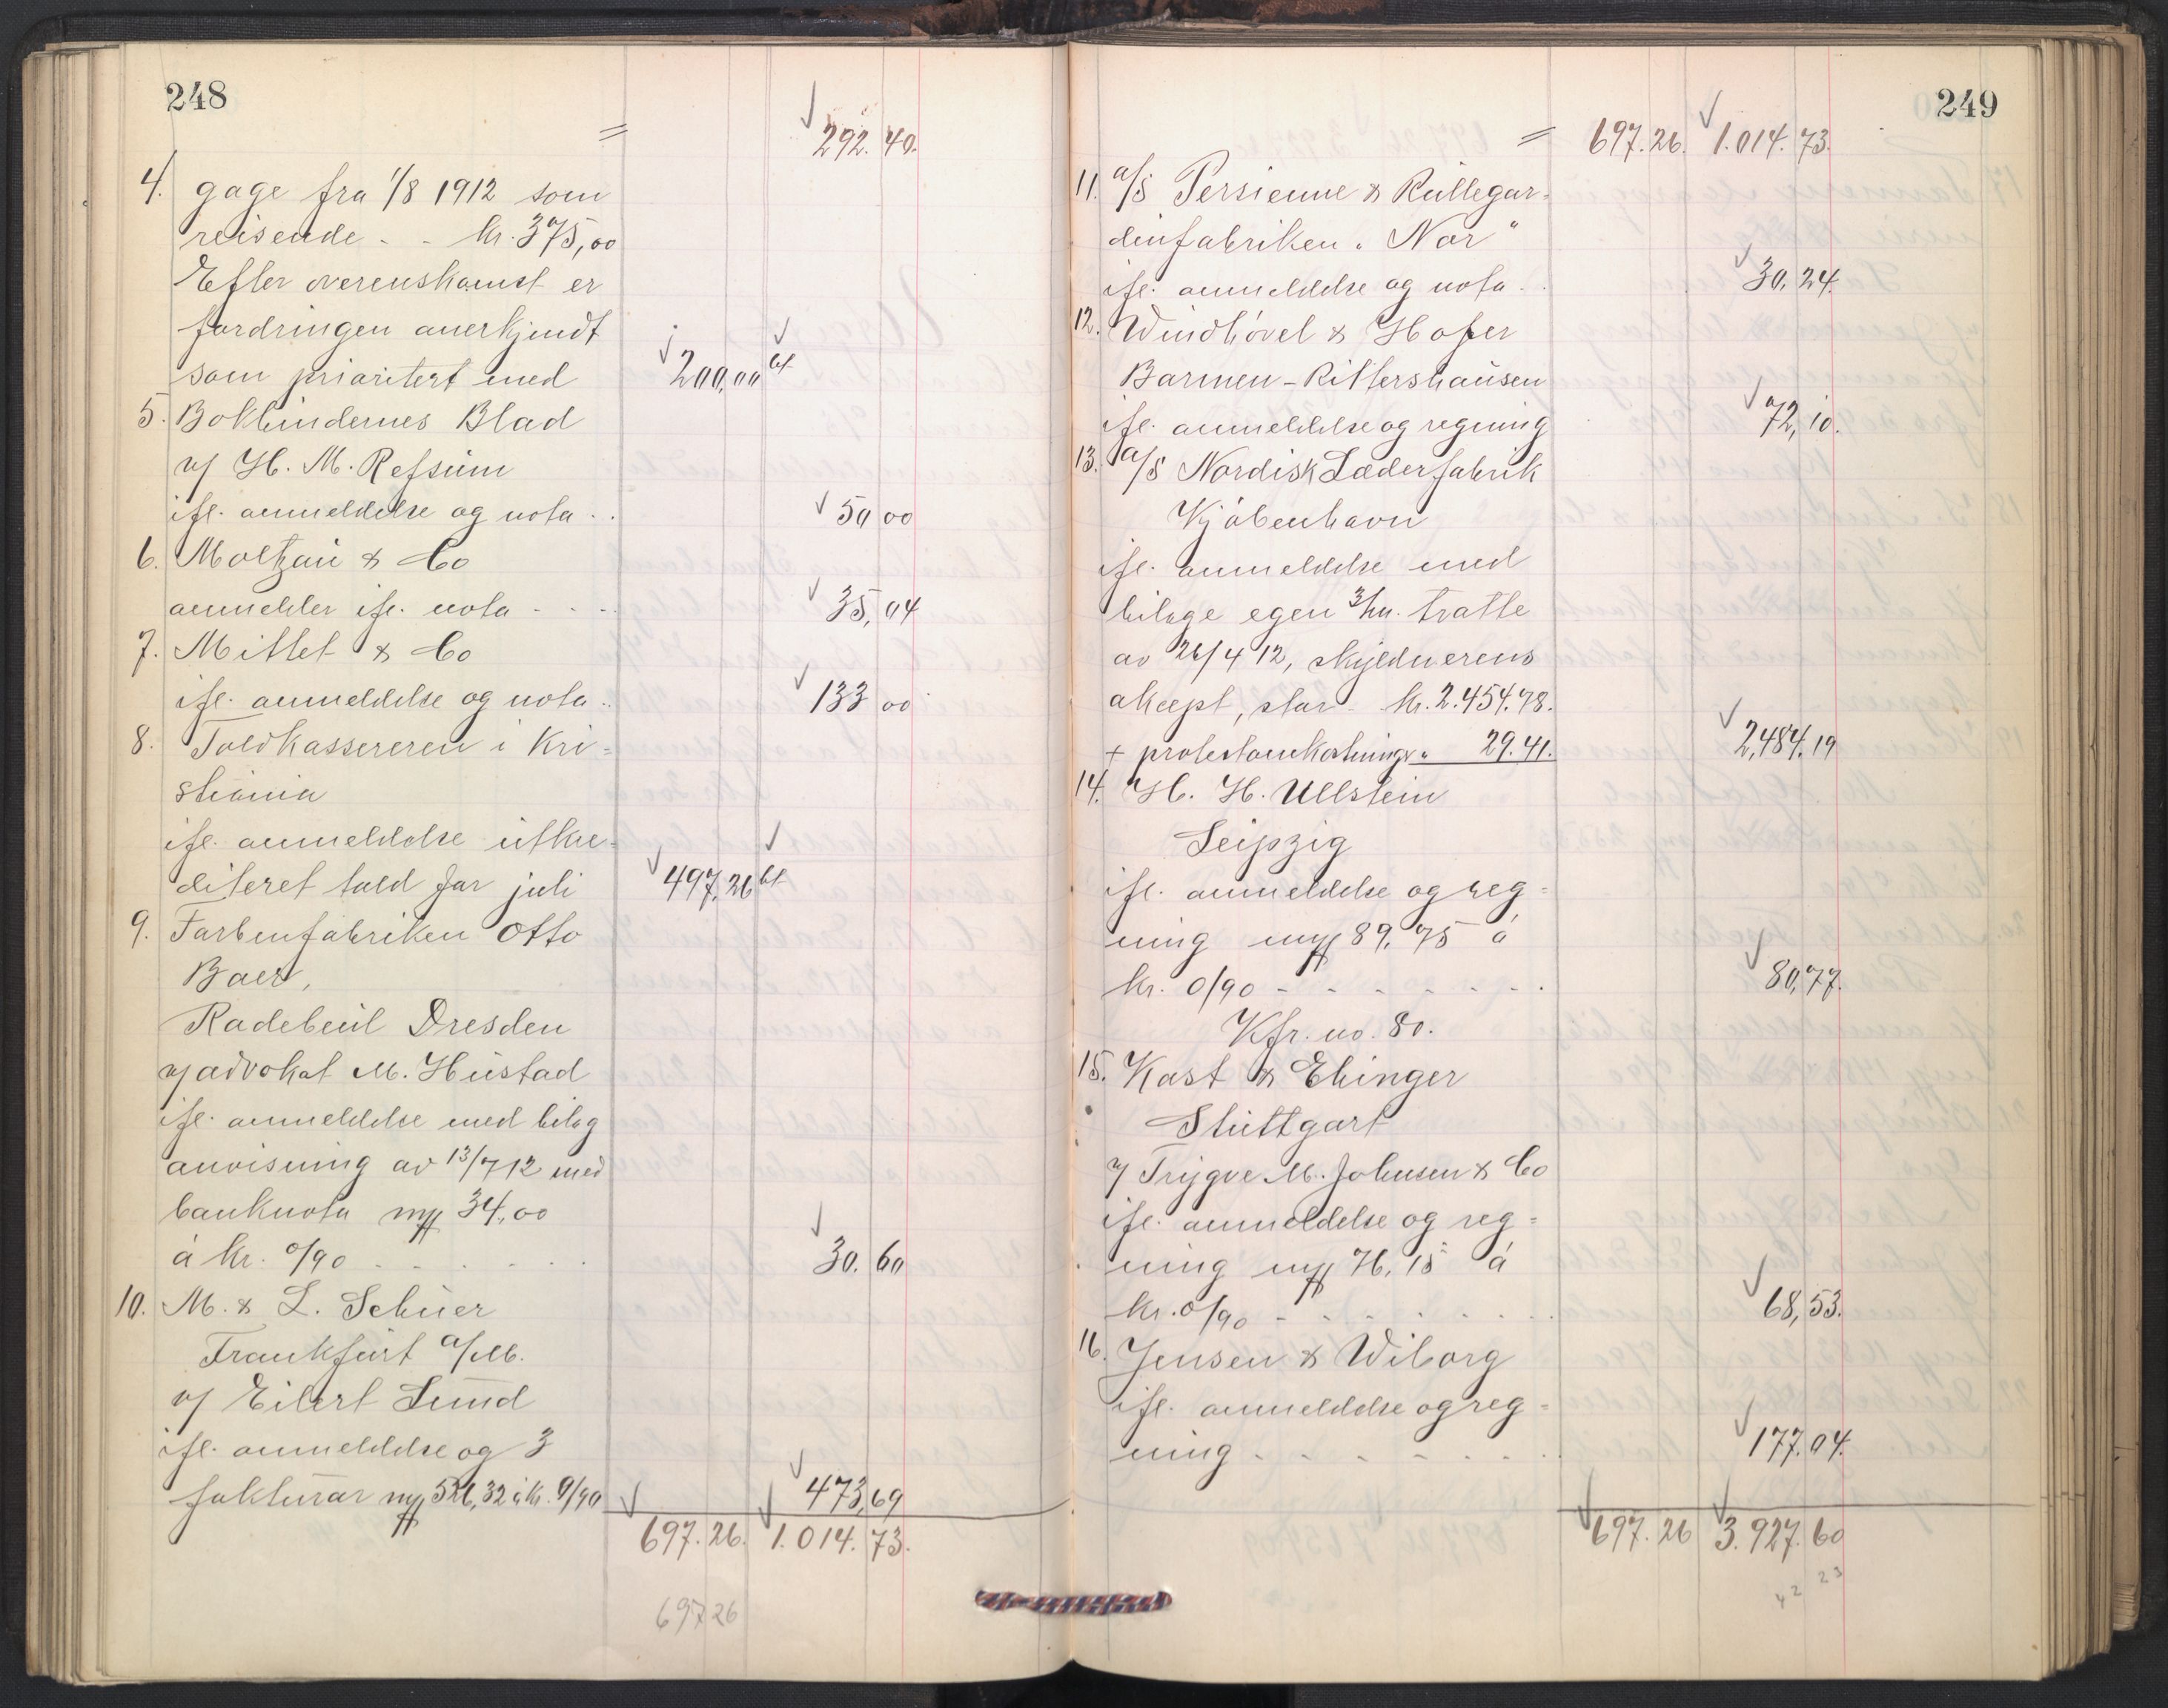 248
= 292.40.
4. gage fra 1/8 1912 som
reisende - - kr. 375,00
Efter overenskomst er
fordringen anerkjendt
som prioritert med 200,00 bt
5. Bokbindernes Blad
v/ H. M. Refsum
ifl. anmeldelse og nota . . 50 00
6. Moltzau & Co
anmelder ifl. nota - - - - 35,04
7. Mittet & Co
ifl. anmeldelse og nota . . 133 00
8. Toldkassereren i Kri=
stiania
ifl. anmeldelse utkre=
diteret told for juli 497,26 bt
9. Farbenfabriken Otto
Baer,
Radebeul Dresden
v/ advokat M. Hustad
ifl. anmeldelse med bilag
anvisning av 13/7 12 med
banknota 34,00
à kr. 0/90 - - - - - - 30.60
10. M. & L. Schuer
Frankfurt a/M.
v/ Eilert Lund
ifl. anmeldelse og 3
fakturar 526,32 à kr. 0/90 473,69
697.26. 1.014.73.
697 26
249
= 697.26. 1.014.73.
11. a/s Persienne & Rullegar=
dinfabriken "Nor"
ifl. anmeldelse og nota . . 30,24.
12. Windhövel & Hofer
Barmen - Rittershausen
ifl. anmeldelse og regning 72,10.
13. a/s Nordisk Læderfabrik
Kjøbenhavn
ifl. anmeldelse med
bilage egen 3/m. tratte
av 26/4 12, skyldnerens
aksept, stor - kr. 2.454.78.
+ protestomkostninger " 29.41. 2,484.19
14. H. H. Ullstein
Leipzig
ifl. anmeldelse og reg=
ning 89,75 à
kr. 0/90 - - - - - - - 80,77.
Kfr. no. 80.
15. Kast & Ehinger
Stuttgart
v/ Trygve M. Johnsen & Co
ifl. anmeldelse og reg=
ning 76,15 à
kr. 0/90 - - - - - - - 68,53.
16. Jensen & Wiborg
ifl. anmeldelse og reg=
ning - - - - - - - 177.04.
697.26 3.927.60
42 23